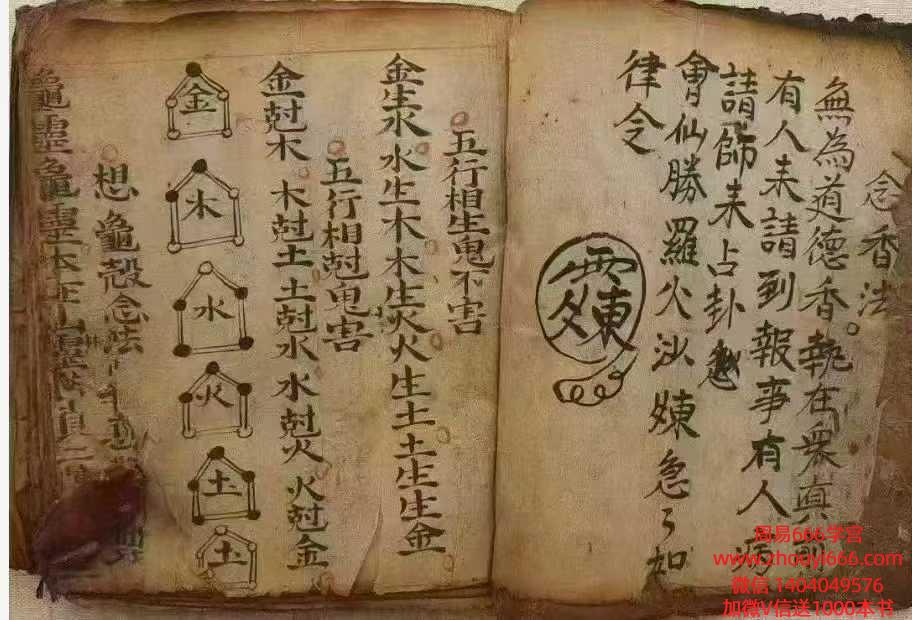 念香法
無為道德香執在衆真
有人未請到報事有人
請師未占卦
會仙勝羅火沙煉急々如
律令
五行相生鬼不害
金生水水生木木生火火生土土生生金
五行相尅鬼害
金尅木木尅土土尅水水尅火火尅金
金
木
水
火
土
土
想龜殼念法
龜靈龜靈
周易666学宫
www.zhouyi666.com
微信 1404049576
加微V信送1000本书